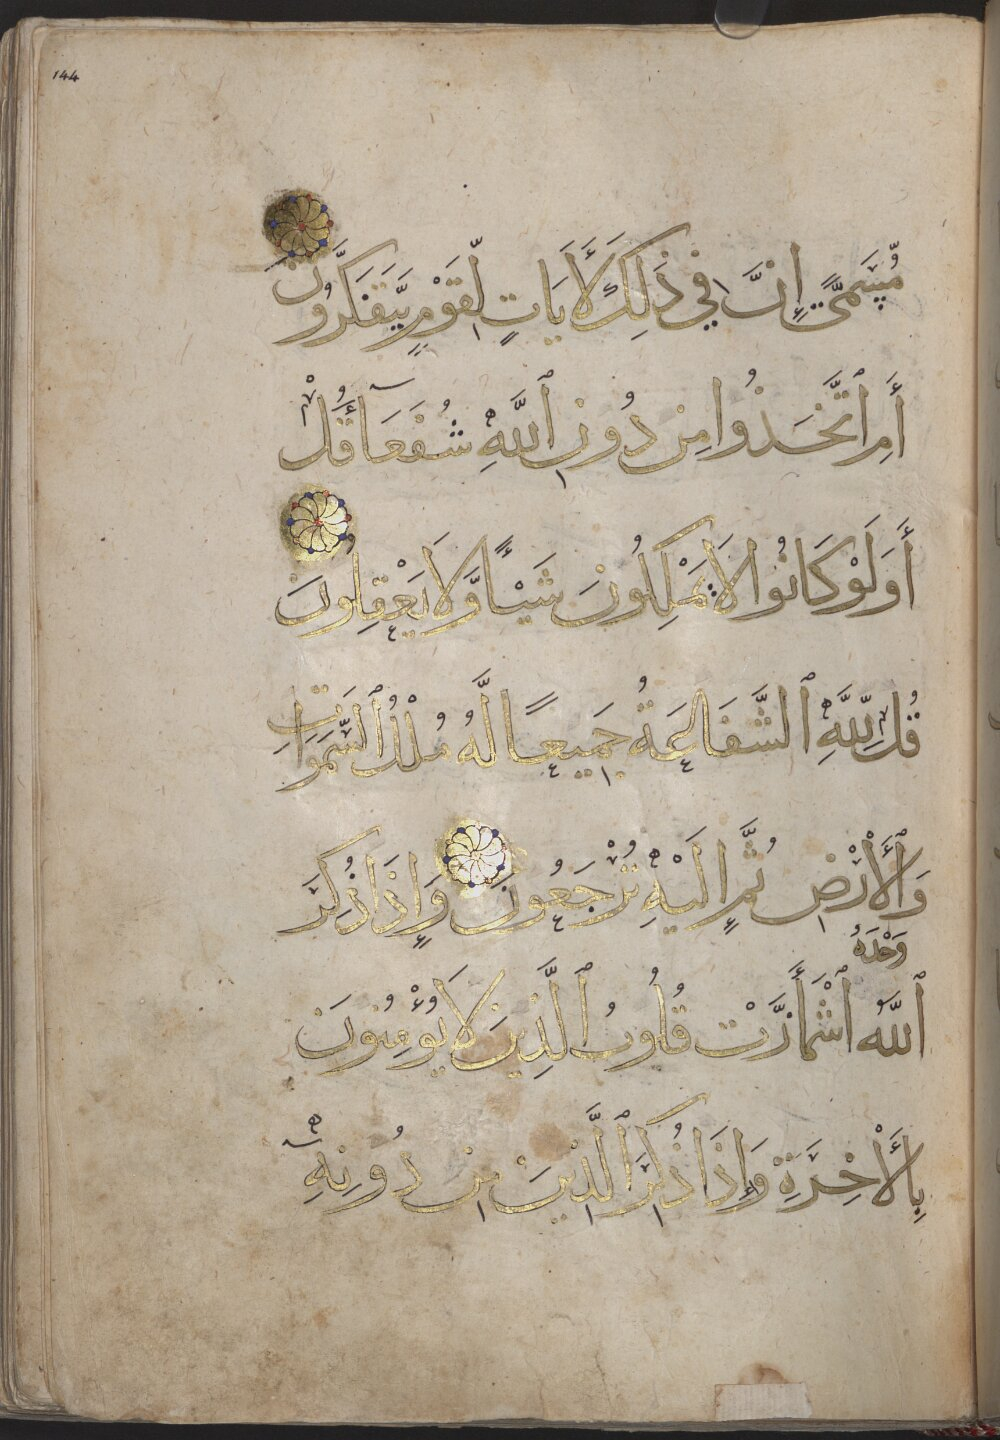 144
مُّسَمًّى إِنَّ فِي ذَٰلِكَ لَأَيَاتٍ لِّقَوْمٍ يَتَفَكَّرُونَ
أَمِ اتَّخَذُوا مِن دُونِ ٱللَّهِ شُفَعَآءَ قُلْ
أَوَلَوْ كَانُوا لَا يَمْلِكُونَ شَيْئًا وَّلَا يَعْقِلُونَ
قُل لِلَّهِ ٱلشَّفَاعَةُ جَمِيعًا لَّهُ مُلْكُ ٱلسَّمَوَاتِ
وَٱلْأَرْضِ ثُمَّ إِلَيْهِ تُرْجَعُونَ وَإِذَا ذُكِرَ
وَحْدَهُ
ٱللَّهُ ٱشْمَأَزَّتْ قُلُوبُ ٱلَّذِينَ لَا يُؤْمِنُونَ
بِالْأَخِرَةِ وَإِذَا ذُكِرَ ٱلَّذِينَ مِن دُونِهِ